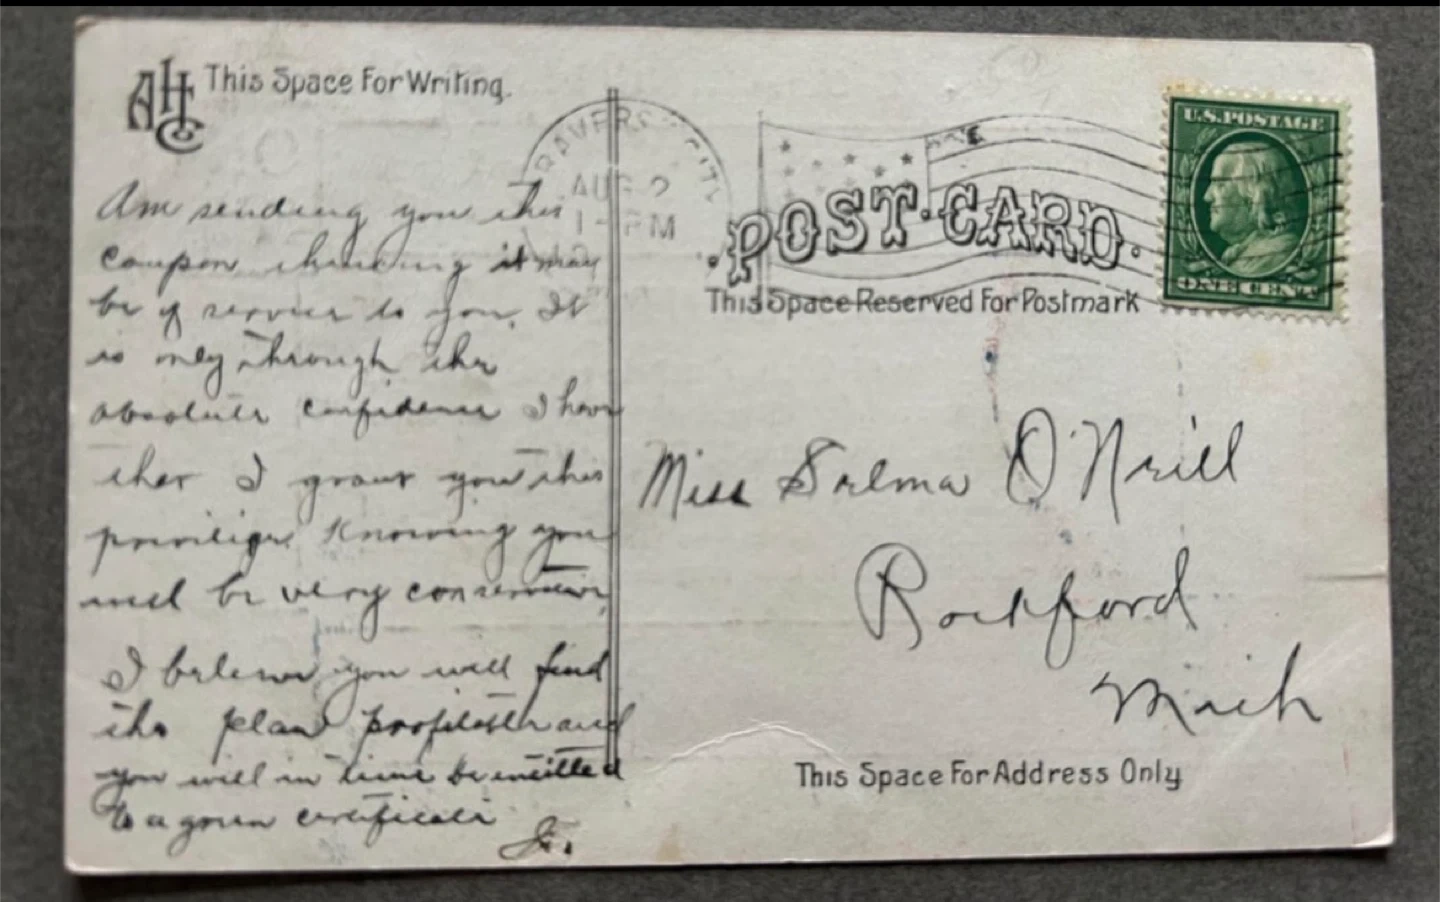 AHC
This Space For Writing.
TRAVERSE CITY
AUG 2
1 - PM
U.S. POSTAGE
ONE CENT
POST CARD.
This Space Reserved For Postmark
Am sending you this
coupon thinking it may
be of service to you. It
is only through the
absolute confidence I have
that I grant you this
privilige. Knowing you
will be very conservative,
I believe you will find
the plan profitable and
you will in time be entitled
to a green certificate
J.
Miss Selma O'Neill
Rockford
Mich
This Space For Address Only